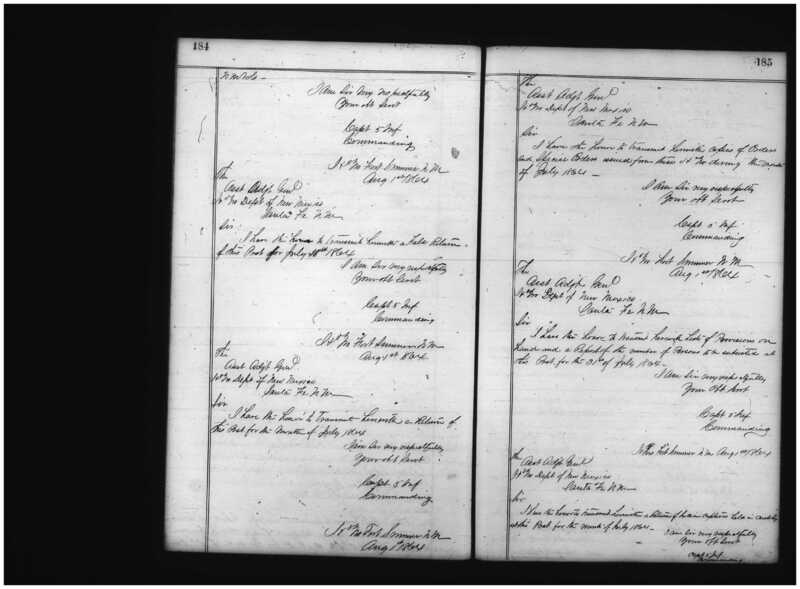 184
I Am Sir very respectfully
Your obt Servt
Capt 5 Inf
Commanding
Hd Qrs Fort Sumner N.M.
Aug 1st 1864
The
Asst Adjt Genl
Hd Qrs Dept of New Mexico
Santa Fe N.M.
Sir
I have the honor to transmit herewith a Return
of this Post for July 1864
I am Sir very respectfully
Your obt Servt
Capt 5 Inf
Commanding
Hd Qrs Fort Sumner N.M.
Aug 1st 1864
The
Asst Adjt Genl
Hd Qrs Dept of New Mexico
Santa Fe N.M.
Sir
I have the honor to transmit herewith a Return of
this Post for the Month of July 1864
I am Sir very respectfully
Your obt Servt
Capt 5 Inf
Commanding
Hd Qrs Fort Sumner N.M.
Aug 1st 1864
185
The
Asst Adjt Genl
Hd Qrs Dept of New Mexico
Santa Fe N.M.
Sir
I have the honor to transmit herewith copies of Orders
and Orders issued from these Hd Qrs during the month
of July 1864
I Am Sir very respectfully
Your obt Servt
Capt 5 Inf
Commanding
Hd Qrs Fort Sumner N.M.
Aug 1st 1864
The
Asst Adjt Genl
Hd Qrs Dept of New Mexico
Santa Fe N.M.
Sir
I have the honor to transmit herewith List of Provisions on
hand and a Report of the number of Persons to be subsisted at
this Post for the 31st of July 1864
I Am Sir very respectfully
Your Obt Servt
Capt 5 Inf
Commanding
Hd Qrs Fort Sumner N.M. Aug 1st 1864
The
Asst Adjt Genl
Hd Qrs Dept of New Mexico
Santa Fe N.M.
Sir
I have the honor to transmit herewith a Return of Indian captives held in
at this Post for the month of July 1864
I am Sir very respectfully
Your Obt Servt
Capt 5 Inf
Commanding